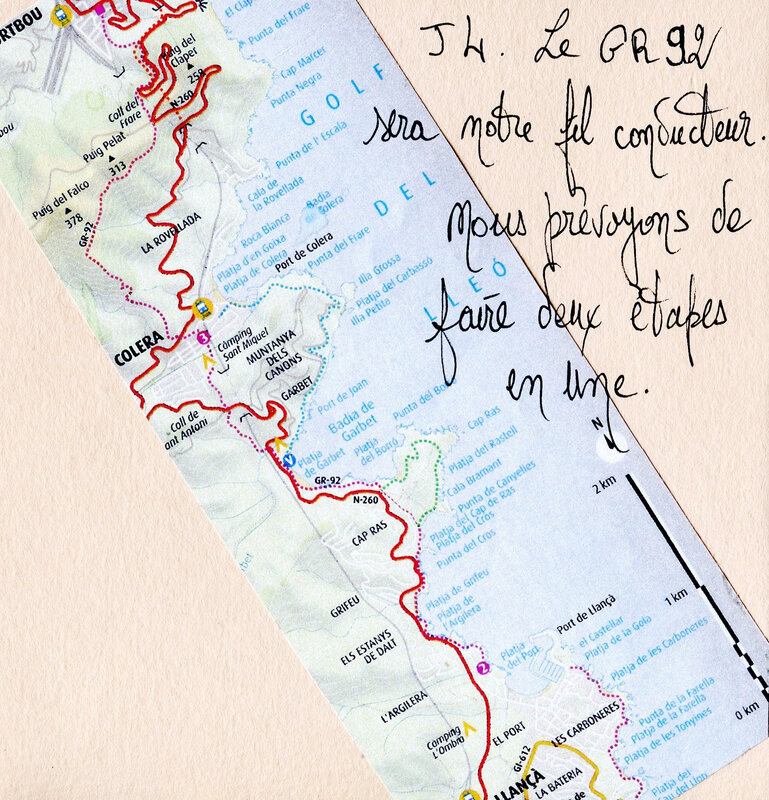 J4. Le GR92
sera notre fil conducteur.
Nous prévoyons de
faire deux étapes
en une.
RTBOU
El Clap
Punta del Frare
Puig del
Claper
Cap Marcer
Punta Negra
N-260
Coll del
Frare
Puig Pelat
313
Puig del Falco
378
GR-92
GOLF
DEL
LLEÓ
Punta de l'Escala
Cala de
la Rovellada
Badia
Colera
Roca Blanca
Platja d'en Goixa
Platja de Colera
Port de Colera
Punta del Frare
LA ROVELLADA
Illa Grossa
Platja del Carbassó
Illa Petita
COLERA
3
Càmping
Sant Miquel
MUNTANYA
DELS
CANONS
GARBET
Coll de
ant Antoni
Port de Joan
Badia de
Garbet
Platja
de Garbet
Platja
del Borró
Punta del Bor
Cap Ras
Platja del Rastell
Cala Bramant
Punta de Canyelles
Platja del Cap de Ras
Platja del Cros
Punta del Cros
GR-92
N-260
CAP RAS
N
2 km
1 km
0 km
GRIFEU
Platja de Grifeu
Platja de
l'Argilera
ELS ESTANYS
DE DALT
L'ARGILERA
2
Platja
del Port
Port de Llançà
el Castellar
Platja de la Gola
Platja de les Carboneres
Punta de la Farella
Platja de la Farella
Platja de les Tonyines
Càmping
L'Ombra
EL PORT
LES CARBONERES
GI-612
LLANÇÀ
LA BATERIA